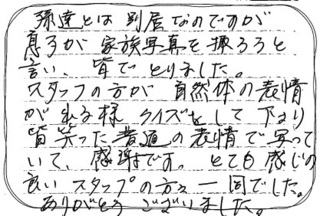 孫達とは別居なのですが
息子が家族写真を撮ろうと
言い、皆でとりました。
スタッフの方が自然体の表情
が出る様クイズをして下さり
皆笑った普通の表情で写って
いて、感謝です。とても感じの
良いスタッフの方々一同でした。
ありがとうございました。